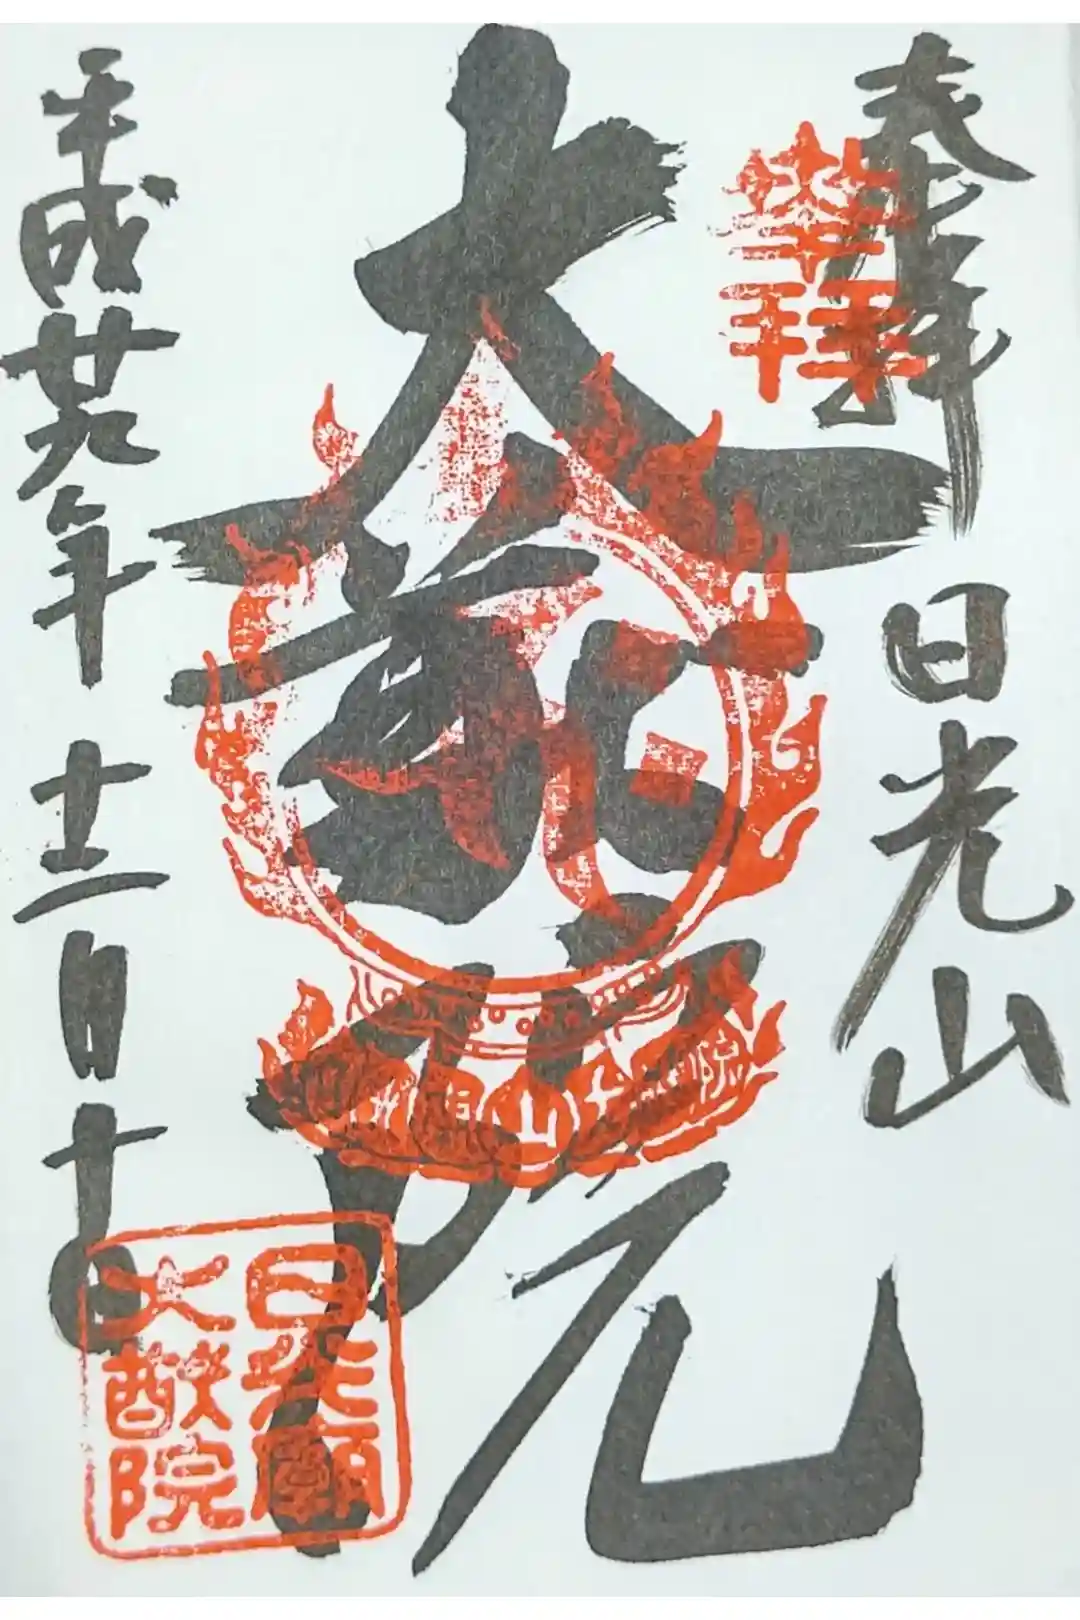 奉拝
日光山
大猷院
平成廿九年十二月十日
日光廟
大猷院